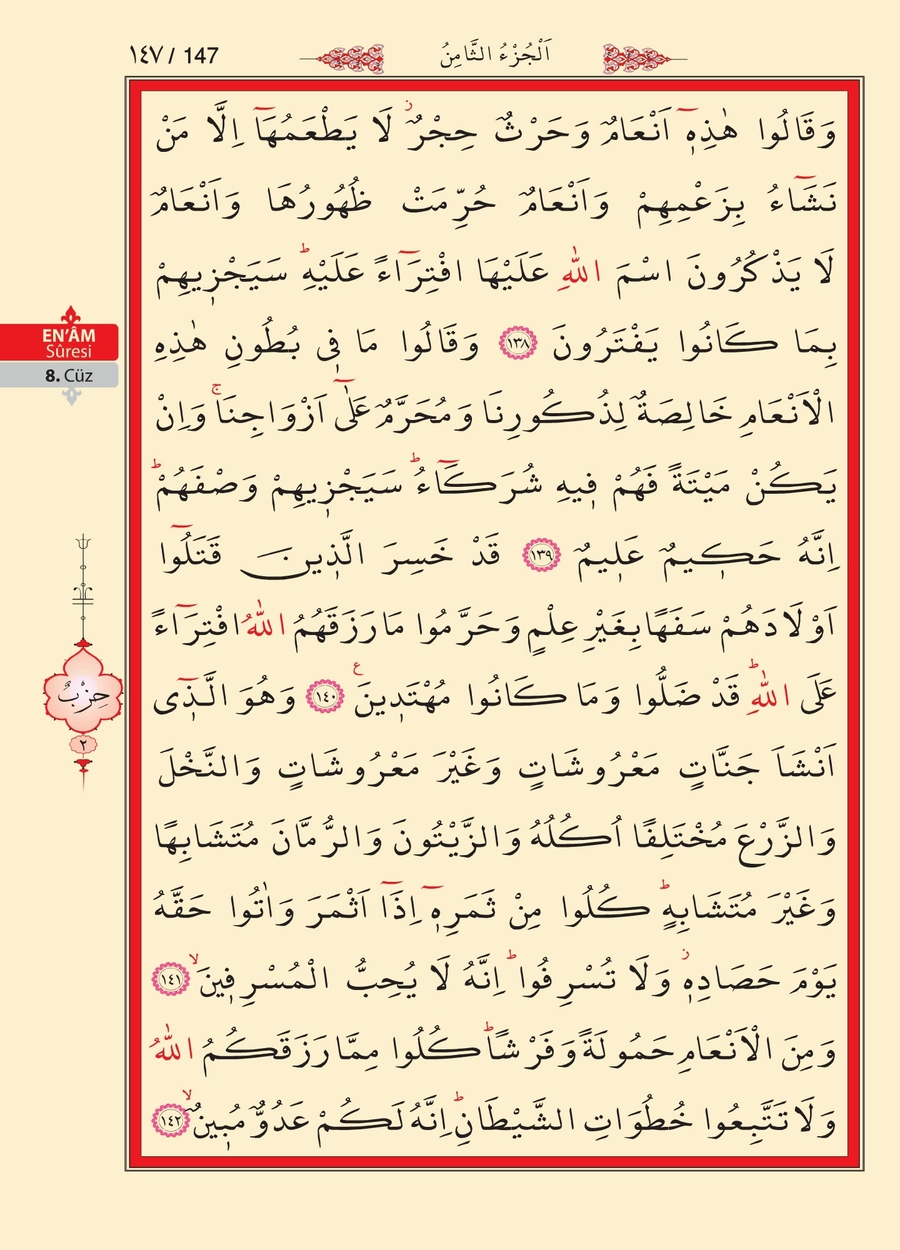 ١٤٧ / 147
اَلْجُزْءُ الثَّامِنُ
وَقَالُوا هٰذِه۪ٓ اَنْعَامٌ وَحَرْثٌ حِجْرٌۘ لَا يَطْعَمُهَٓا اِلَّا مَنْ
نَشَٓاءُ بِزَعْمِهِمْ وَاَنْعَامٌ حُرِّمَتْ ظُهُورُهَا وَاَنْعَامٌ
لَا يَذْكُرُونَ اسْمَ اللّٰهِ عَلَيْهَا افْتِرَٓاءً عَلَيْهِۜ سَيَجْز۪يهِمْ
بِمَا كَانُوا يَفْتَرُونَ ﴿١٣٨﴾ وَقَالُوا مَا ف۪ي بُطُونِ هٰذِهِ
الْاَنْعَامِ خَالِصَةٌ لِذُكُورِنَا وَمُحَرَّمٌ عَلٰٓى اَزْوَاجِنَاۚ وَاِنْ
يَكُنْ مَيْتَةً فَهُمْ ف۪يهِ شُرَكَٓاءُۜ سَيَجْز۪يهِمْ وَصْفَهُمْۜ
اِنَّهُ حَك۪يمٌ عَل۪يمٌ ﴿١٣٩﴾ قَدْ خَسِرَ الَّذ۪ينَ قَتَلُٓوا
اَوْلَادَهُمْ سَفَهًا بِغَيْرِ عِلْمٍ وَحَرَّمُوا مَا رَزَقَهُمُ اللّٰهُ افْتِرَٓاءً
عَلَى اللّٰهِۜ قَدْ ضَلُّوا وَمَا كَانُوا مُهْتَد۪ينَ ﴿١٤٠﴾ وَهُوَ الَّذ۪ٓي
اَنْشَاَ جَنَّاتٍ مَعْرُوشَاتٍ وَغَيْرَ مَعْرُوشَاتٍ وَالنَّخْلَ
وَالزَّرْعَ مُخْتَلِفًا اُكُلُهُ وَالزَّيْتُونَ وَالرُّمَّانَ مُتَشَابِهًا
وَغَيْرَ مُتَشَابِهٍۜ كُلُوا مِنْ ثَمَرِه۪ٓ اِذَٓا اَثْمَرَ وَاٰتُوا حَقَّهُ
يَوْمَ حَصَادِه۪ۘ وَلَا تُسْرِفُواۜ اِنَّهُ لَا يُحِبُّ الْمُسْرِف۪ينَۙ ﴿١٤١﴾
وَمِنَ الْاَنْعَامِ حَمُولَةً وَفَرْشًاۜ كُلُوا مِمَّا رَزَقَكُمُ اللّٰهُ
وَلَا تَتَّبِعُوا خُطُوَاتِ الشَّيْطَانِۜ اِنَّهُ لَكُمْ عَدُوٌّ مُب۪ينٌۙ ﴿١٤٢﴾
EN’ÂM
Sûresi
8. Cüz
حِزْبٌ
٢